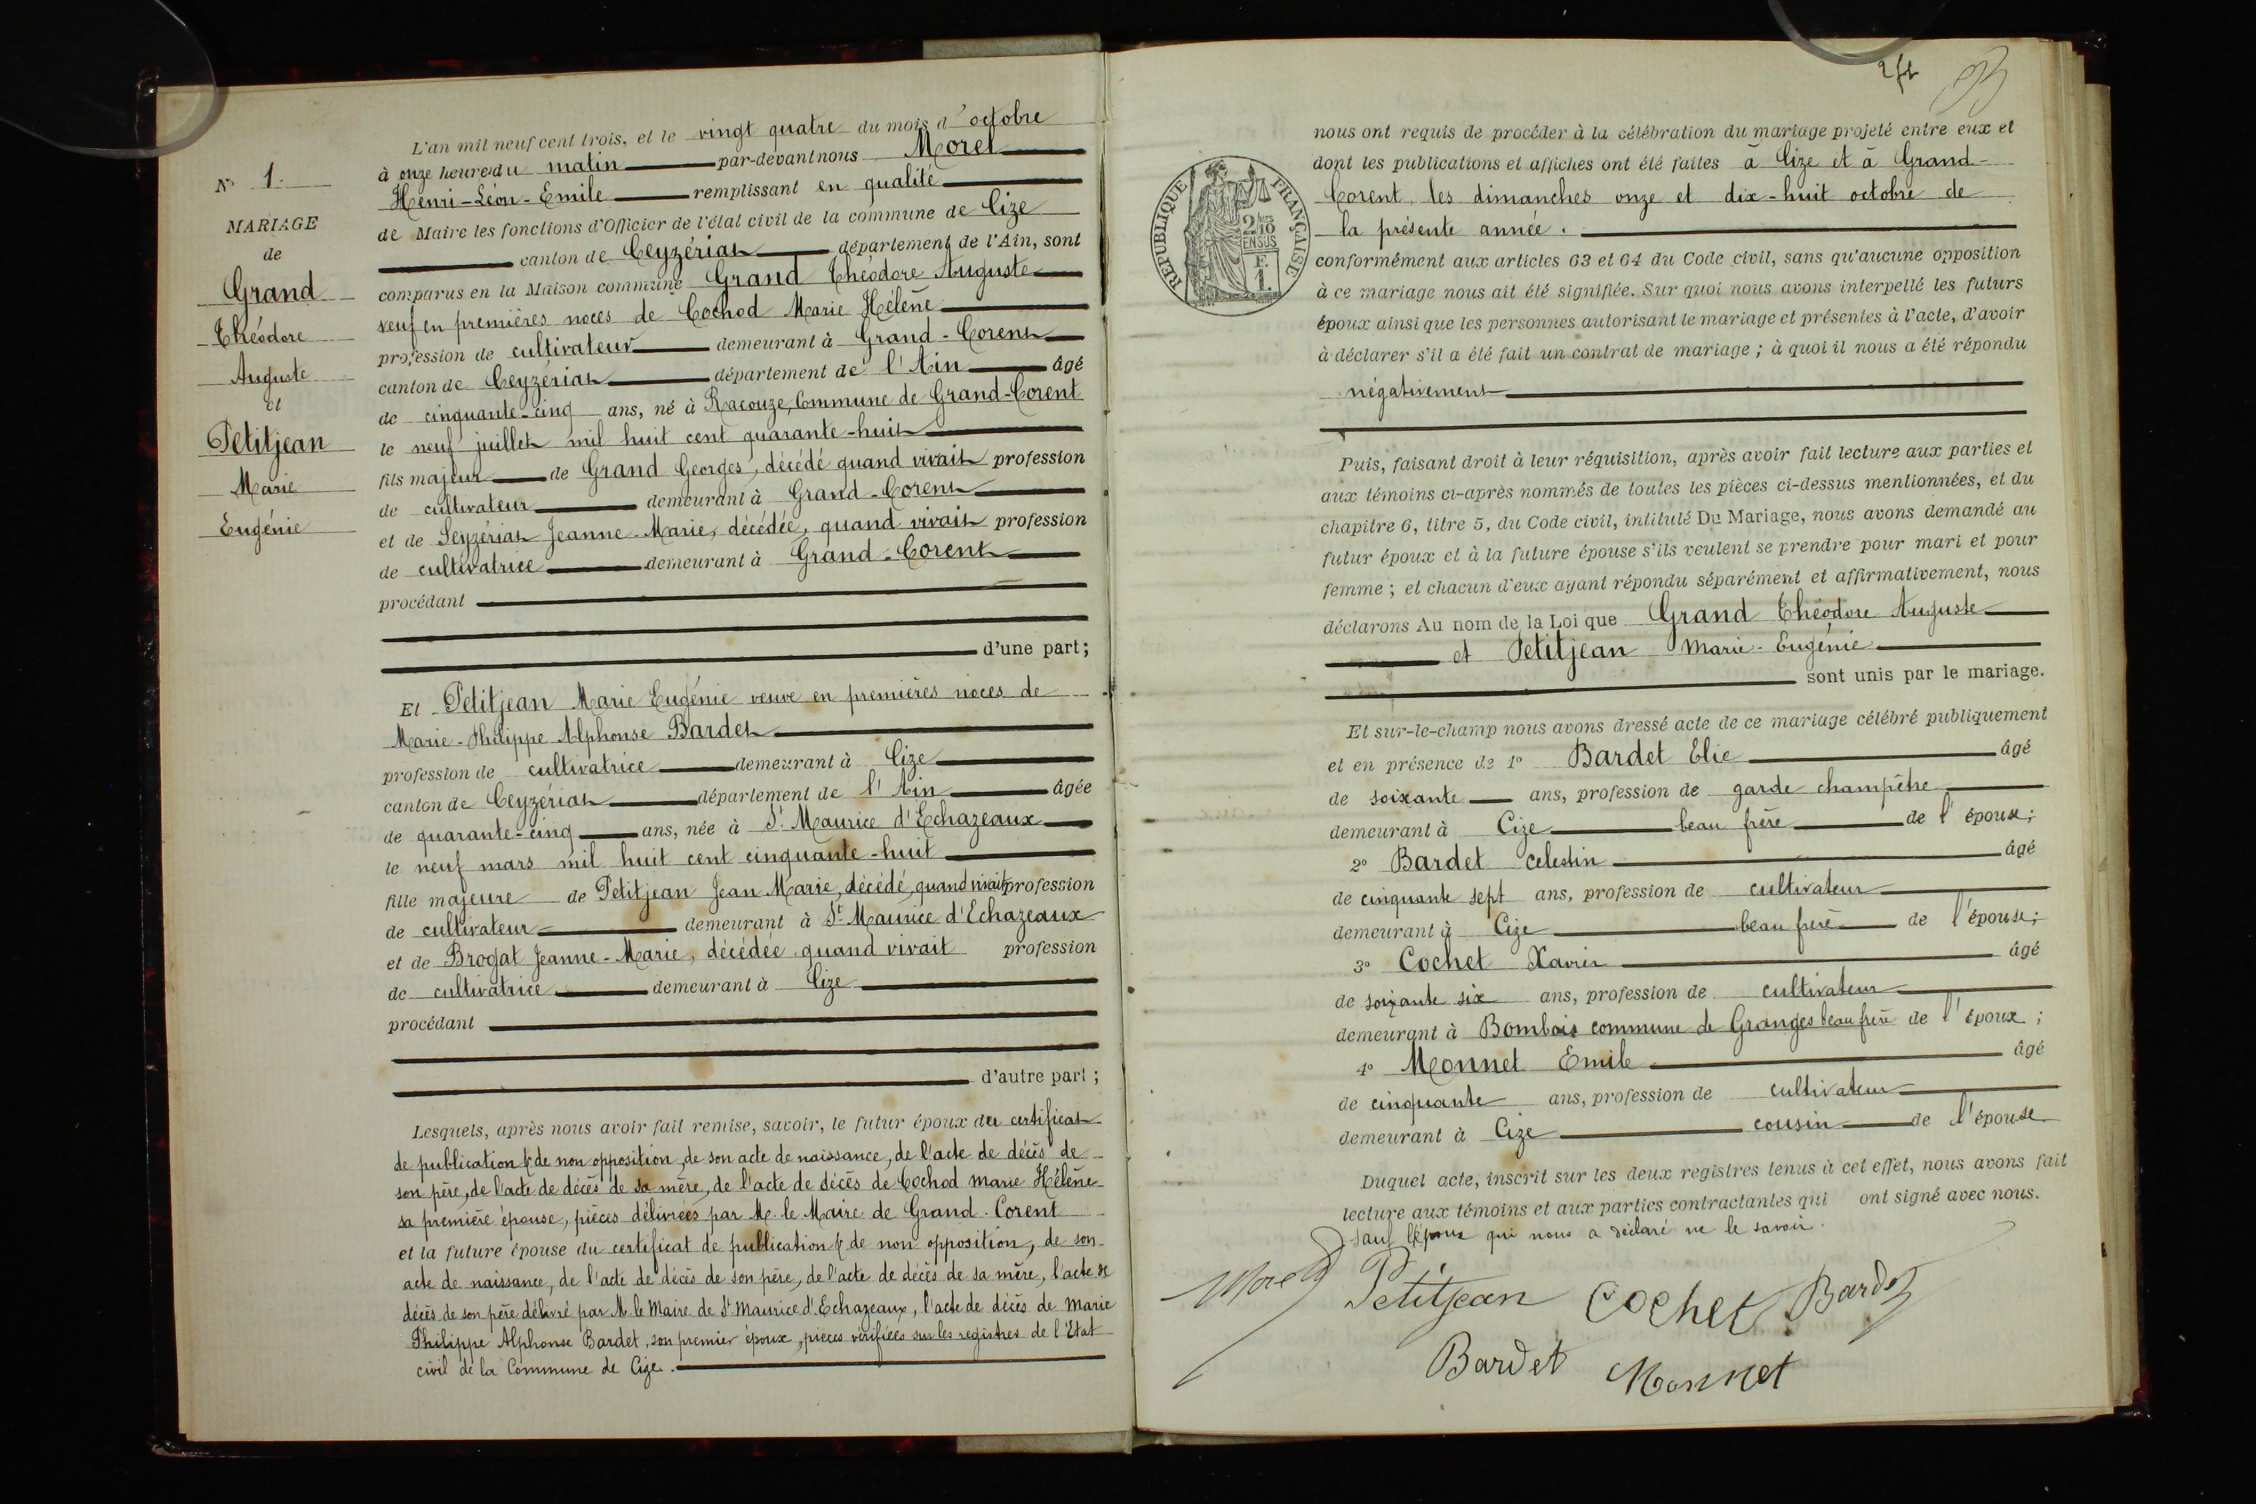 N° 1.
MARIAGE
de
Grand
Théodore
Auguste
et
Petitjean
Marie
Eugénie
L'an mil neuf cent trois, et le vingt quatre du mois d'octobre
à onze heure du matin par-devant nous Morel
Henri-Léon-Emile remplissant en qualité
de Maire les fonctions d'Officier de l'état civil de la commune de Cize
canton de Ceyzériat département de l'Ain, sont
comparus en la Maison commune Grand Théodore Auguste
veuf en premières noces de Cochod Marie Hélène
profession de cultivateur demeurant à Grand-Corent
canton de Ceyzériat département de l'Ain âgé
de cinquante-cinq ans, né à Racouze, Commune de Grand-Corent
le neuf juillet mil huit cent quarante-huit
fils majeur de Grand Georges, décédé quand vivait profession
de cultivateur demeurant à Grand-Corent
et de Seyzériat Jeanne-Marie, décédée, quand vivait profession
de cultivatrice demeurant à Grand-Corent
procédant
d'une part;
Et Petitjean Marie Eugénie veuve en premières noces de
Marie-Philippe Alphonse Bardet
profession de cultivatrice demeurant à Cize
canton de Ceyzériat département de l'Ain âgée
de quarante-cinq ans, née à St. Maurice d'Echazeaux
le neuf mars mil huit cent cinquante-huit
fille majeure de Petitjean Jean Marie, décédé, quand vivait profession
de cultivateur demeurant à St Maurice d'Echazeaux
et de Brogat Jeanne-Marie, décédée quand vivait profession
de cultivatrice demeurant à Cize
procédant
d'autre part;
Lesquels, après nous avoir fait remise, savoir, le futur époux du certificat
de publication & de non opposition, de son acte de naissance, de l'acte de décès de
son père, de l'acte de décès de sa mère, de l'acte de décès de Cochod Marie Hélène
sa première épouse, pièces délivrées par M. le Maire de Grand-Corent
et la future épouse du certificat de publication & de non opposition, de son
acte de naissance, de l'acte de décès de son père, de l'acte de décès de sa mère, l'acte de
décès de son père délivré par M. le Maire de St Maurice d'Echazeaux, l'acte de décès de Marie
Philippe Alphonse Bardet, son premier époux, pièces vérifiées sur les registres de l'Etat
civil de la Commune de Cize.
REPUBLIQUE FRANÇAISE
2/10
EN SUS
F.
1.
nous ont requis de procéder à la célébration du mariage projeté entre eux et
dont les publications et affiches ont été faites à Cize et à Grand-
Corent les dimanches onze et dix-huit octobre de
la présente année.
conformément aux articles 63 et 64 du Code civil, sans qu'aucune opposition
à ce mariage nous ait été signifiée. Sur quoi nous avons interpellé les futurs
époux ainsi que les personnes autorisant le mariage et présentes à l'acte, d'avoir
à déclarer s'il a été fait un contrat de mariage; à quoi il nous a été répondu
négativement
Puis, faisant droit à leur réquisition, après avoir fait lecture aux parties et
aux témoins ci-après nommés de toutes les pièces ci-dessus mentionnées, et du
chapitre 6, titre 5, du Code civil, intitulé Du Mariage, nous avons demandé au
futur époux et à la future épouse s'ils veulent se prendre pour mari et pour
femme; et chacun d'eux ayant répondu séparément et affirmativement, nous
déclarons Au nom de la Loi que Grand Théodore Auguste
et Petitjean Marie-Eugénie
sont unis par le mariage.
Et sur-le-champ nous avons dressé acte de ce mariage célébré publiquement
et en présence de 1° Bardet Elie âgé
de soixante ans, profession de garde champêtre
demeurant à Cize beau frère de l'épouse;
2° Bardet Celestin âgé
de cinquante sept ans, profession de cultivateur
demeurant à Cize beau frère de l'épouse;
3° Cochet Xavier âgé
de soixante six ans, profession de cultivateur
demeurant à Bombois commune de Granges beau frère de l'époux;
4° Monnet Emile âgé
de cinquante ans, profession de cultivateur
demeurant à Cize cousin de l'épouse
Duquel acte, inscrit sur les deux registres tenus à cet effet, nous avons fait
lecture aux témoins et aux parties contractantes qui ont signé avec nous.
sauf l'époux qui nous a déclaré ne le savoir.
Morel Petitjean Cochet Bardet
Bardet Monnet